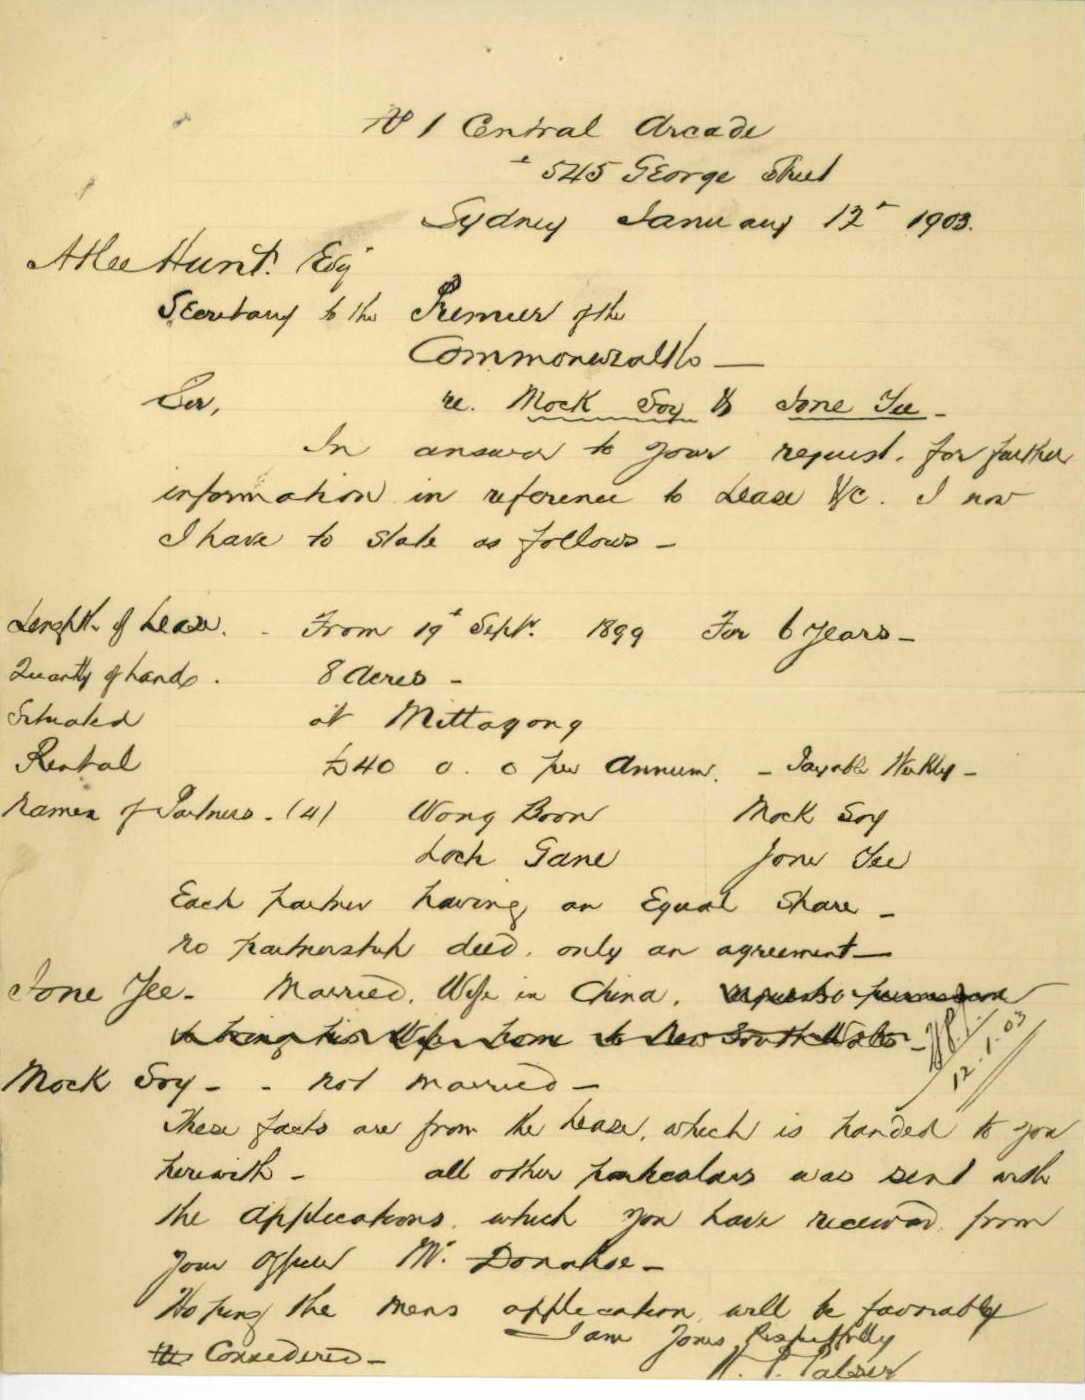 No 1 Central Arcade
545 George Street
Sydney January 12th 1903.
Atlee Hunt. Esq
Secretary to the Premier of the
Commonwealth —
Sir, re. Mock Soy & Jone Yee -
In answer to your request. for further
information in reference to Lease &c. I now
I have to state as follows -
Length of Lease. - From 19th Septr. 1899 For 6 years -
Quantity of Land. 8 Acres -
Situated at Mittagong
Rental £40 0. 0 per Annum. - Payable Weekly -
Names of Partners. (4) Wong Boon Mock Soy
Lock Gane Jone Yee
Each partner having an Equal Share -
No partnership deed. only an agreement —
Jone Yee - Married. Wife in China. requests permission
to bring his Wife home to New South Wales -
12.1.03
Mock Soy - - not married -
These facts are from the Lease. which is handed to you
herewith - all other particulars was sent with
the applications. which you have received from
your officer Mr. Donohoe -
Hoping the mens application will be favorably
Considered -
I am Yours Respectfully